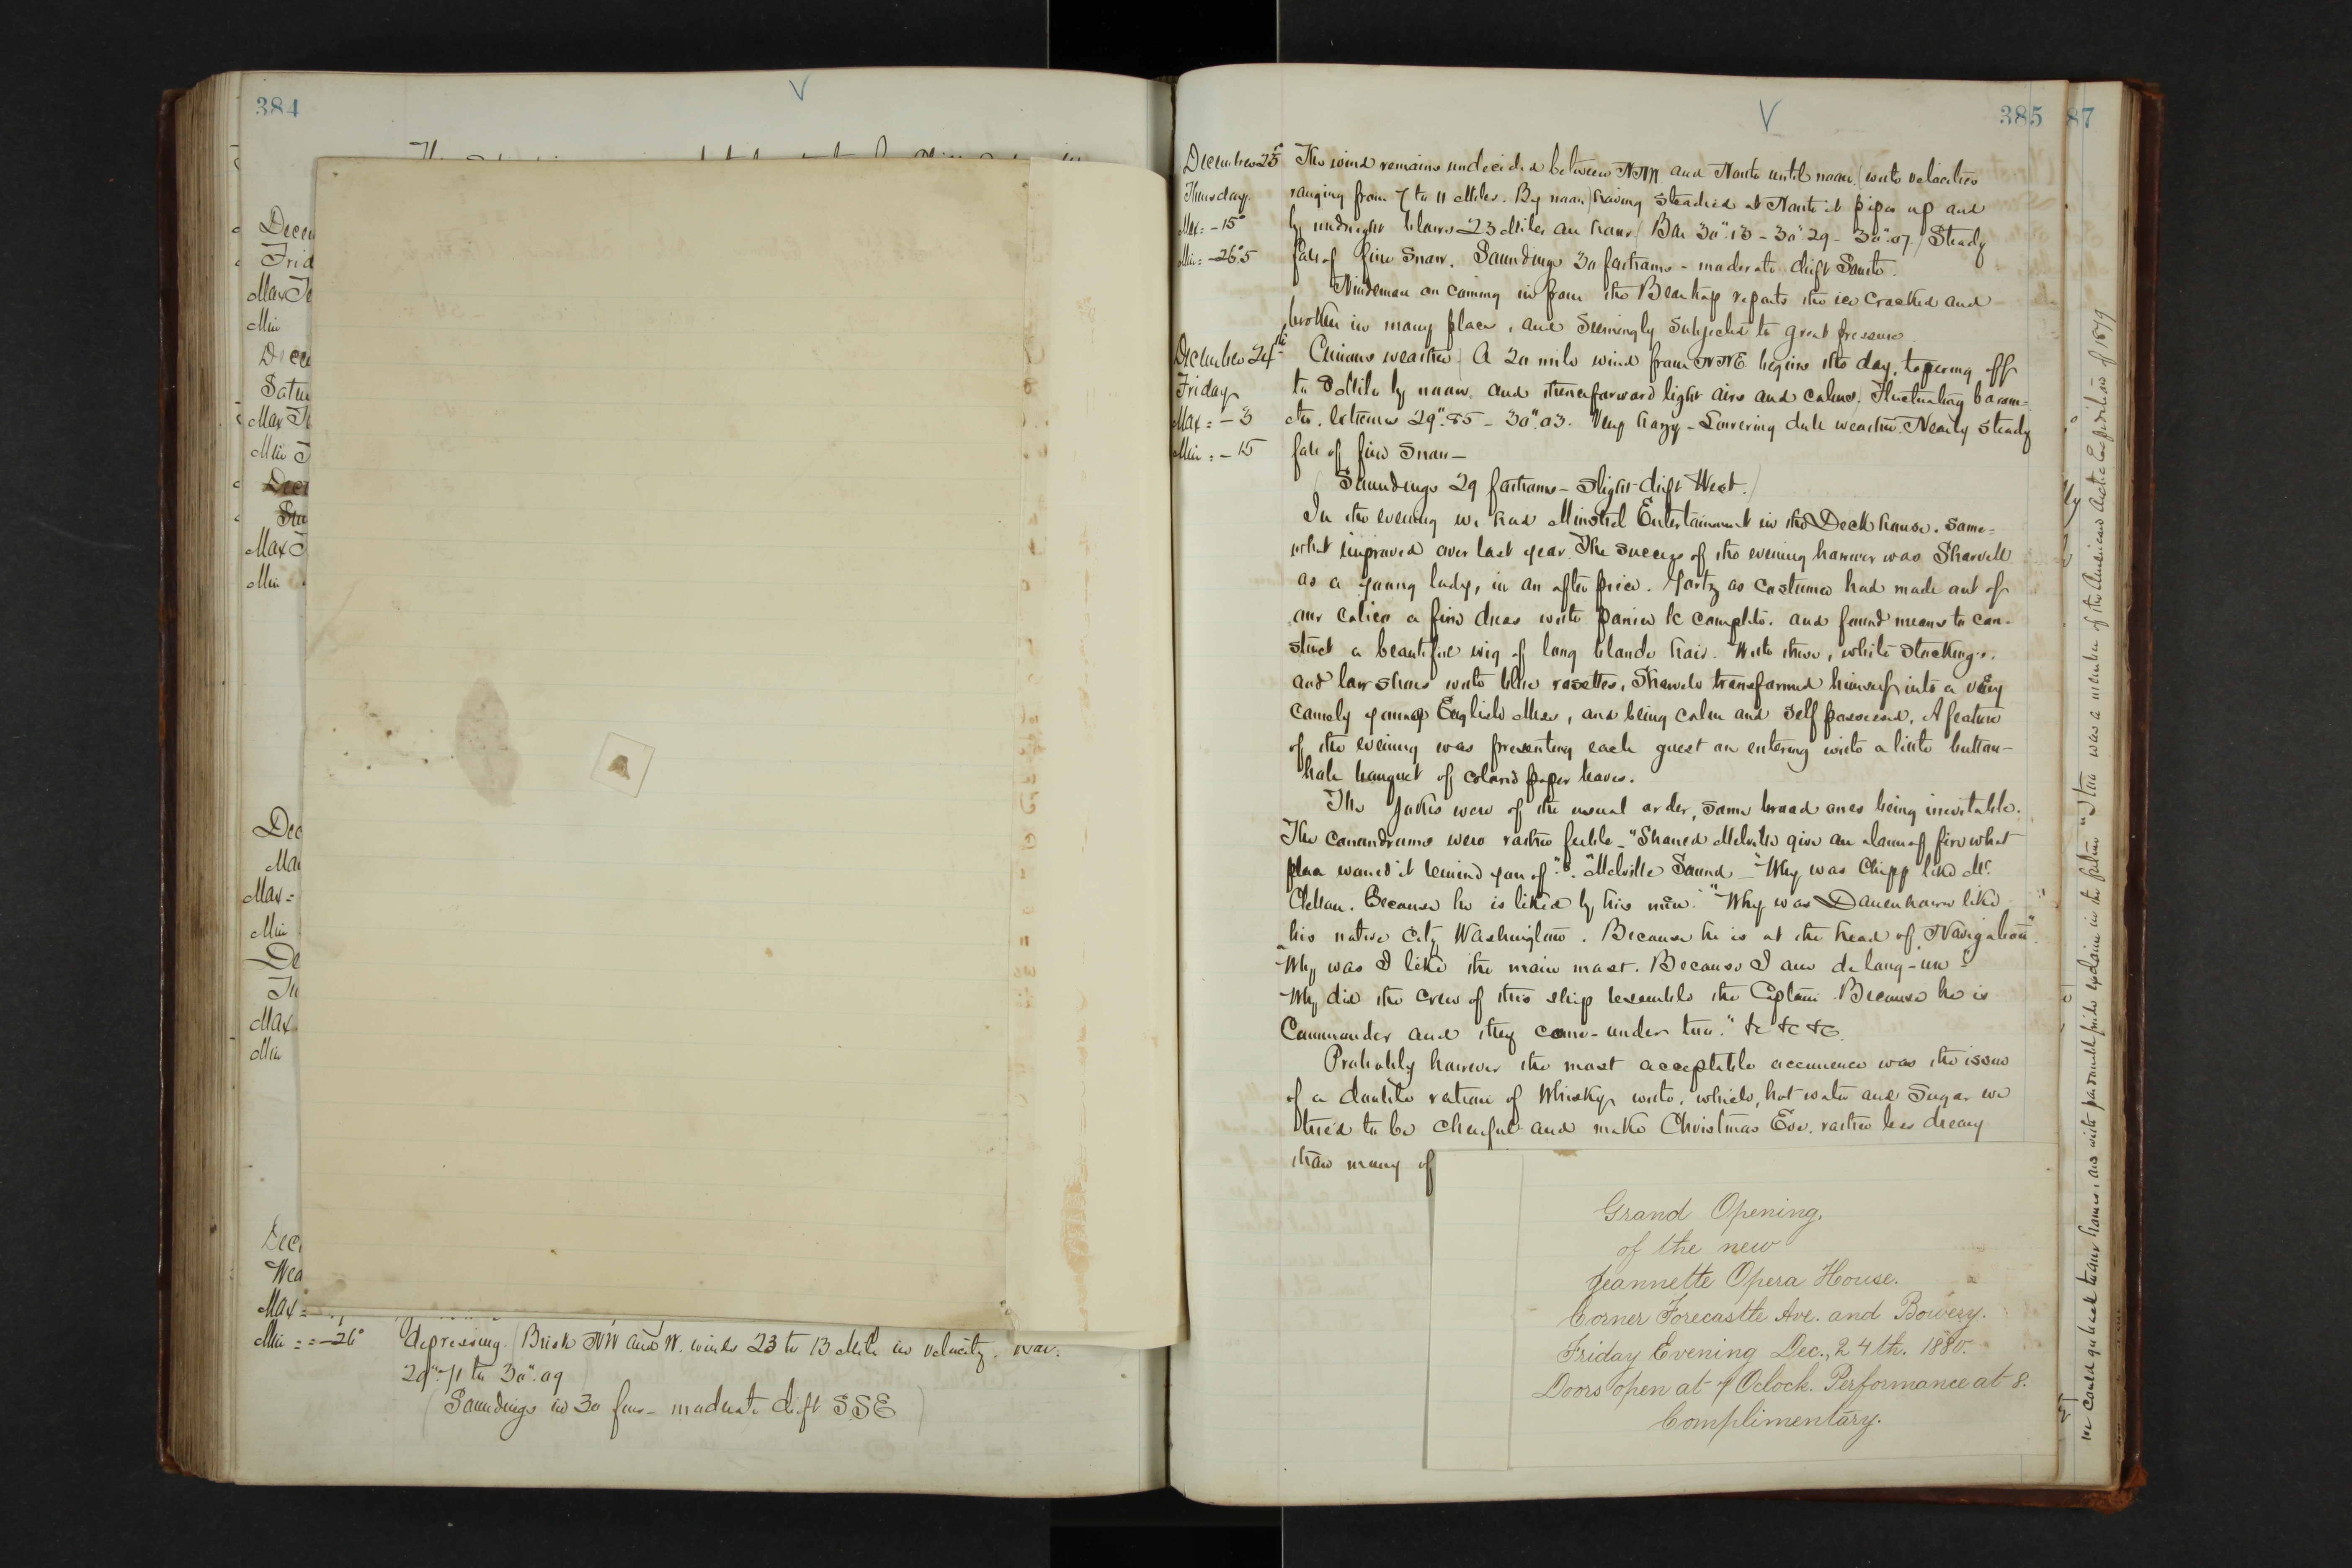 384
Decem
Frid
Max Te
Min
Dece
Satu
Max Te
Min T
Dece
Sun
Max T
Min
Dec
Mon
Max =
Min
De
Tu
Max
Min
Dec
Wed
Max =
Min = -26°
depressing. (Brisk NW and W. winds 23 to 13 Miles in velocity. Bar.
29".71 to 30".09
(Soundings in 30 fms - moderate drift SSE)
385
87
December 23d
Thursday
Max = -15°
Min = -26°.5
The wind remains undecided between NNW and North until noon (with velocities
ranging from 7 to 11 Miles. By noon) having steadied at North it pipes up and
by midnight blows 23 Miles an hour (Bar 30".13 - 30".29 - 30".07.) Steady
fall of fine snow. Soundings 30 fathoms - moderate drift South.
Nindeman on coming in from the Beartrap reports the ice cracked and
broken in many places, and seemingly subjected to great pressure
December 24th
Friday
Max = -3
Min = -15
Curious weather (A 20 mile wind from NNE begins the day, tapering off
to 3 Miles by noon, and thenceforward light airs and calms. Fluctuating barom-
eter. Extremes 29".85 - 30".03. Very hazy - Lowering dull weather. Nearly steady
fall of fine snow -
(Soundings 29 fathoms - slight drift West.)
In the evening we had Minstrel Entertainment in the Deck house. some-
what improved over last year. The success of the evening however was Sharvell
as a young lady, in an after piece. Görtz as costumer had made out of
our calico a fine dress with panier &c complete. and found means to con-
struct a beautiful wig of long blonde hair. With these, white stockings.
and low shoes with blue rosettes, Sharvell transformed himself into a very
comely young English Miss, and being calm and self possessed. A feature
of the evening was presenting each guest on entering with a little button-
hole bouquet of colored paper leaves.
The jokes were of the usual order, some broad ones being inevitable.
The conundrums were rather feeble - "Should Melville give an alarm of fire what
place would it remind you of". "Melville Sound - "Why was Chipp like Mc
Clellan. Because he is liked by his men." "Why was Danenhower like
his native city Washington. Because he is at the head of Navigation".
"Why was I like the main mast. Because I am de long-un"
Why did the crew of this ship resemble the Captain. Because he is
Commander and they come-under too." &c &c &c.
Probably however the most acceptable occurrence was the issue
of a double ration of Whisky with, which, hot water and sugar we
tried to be cheerful and make Christmas Eve. rather less dreary
than many of
Grand Opening.
of the new
Jeannette Opera House.
Corner Forecastle Ave. and Bowery.
Friday Evening Dec., 24th. 1880.
Doors open at 7 Oclock. Performance at 8.
Complimentary.
we could go back to our homes, and with pardonable pride exclaim in the future "I too was a member of the American Arctic Expedition of 1879